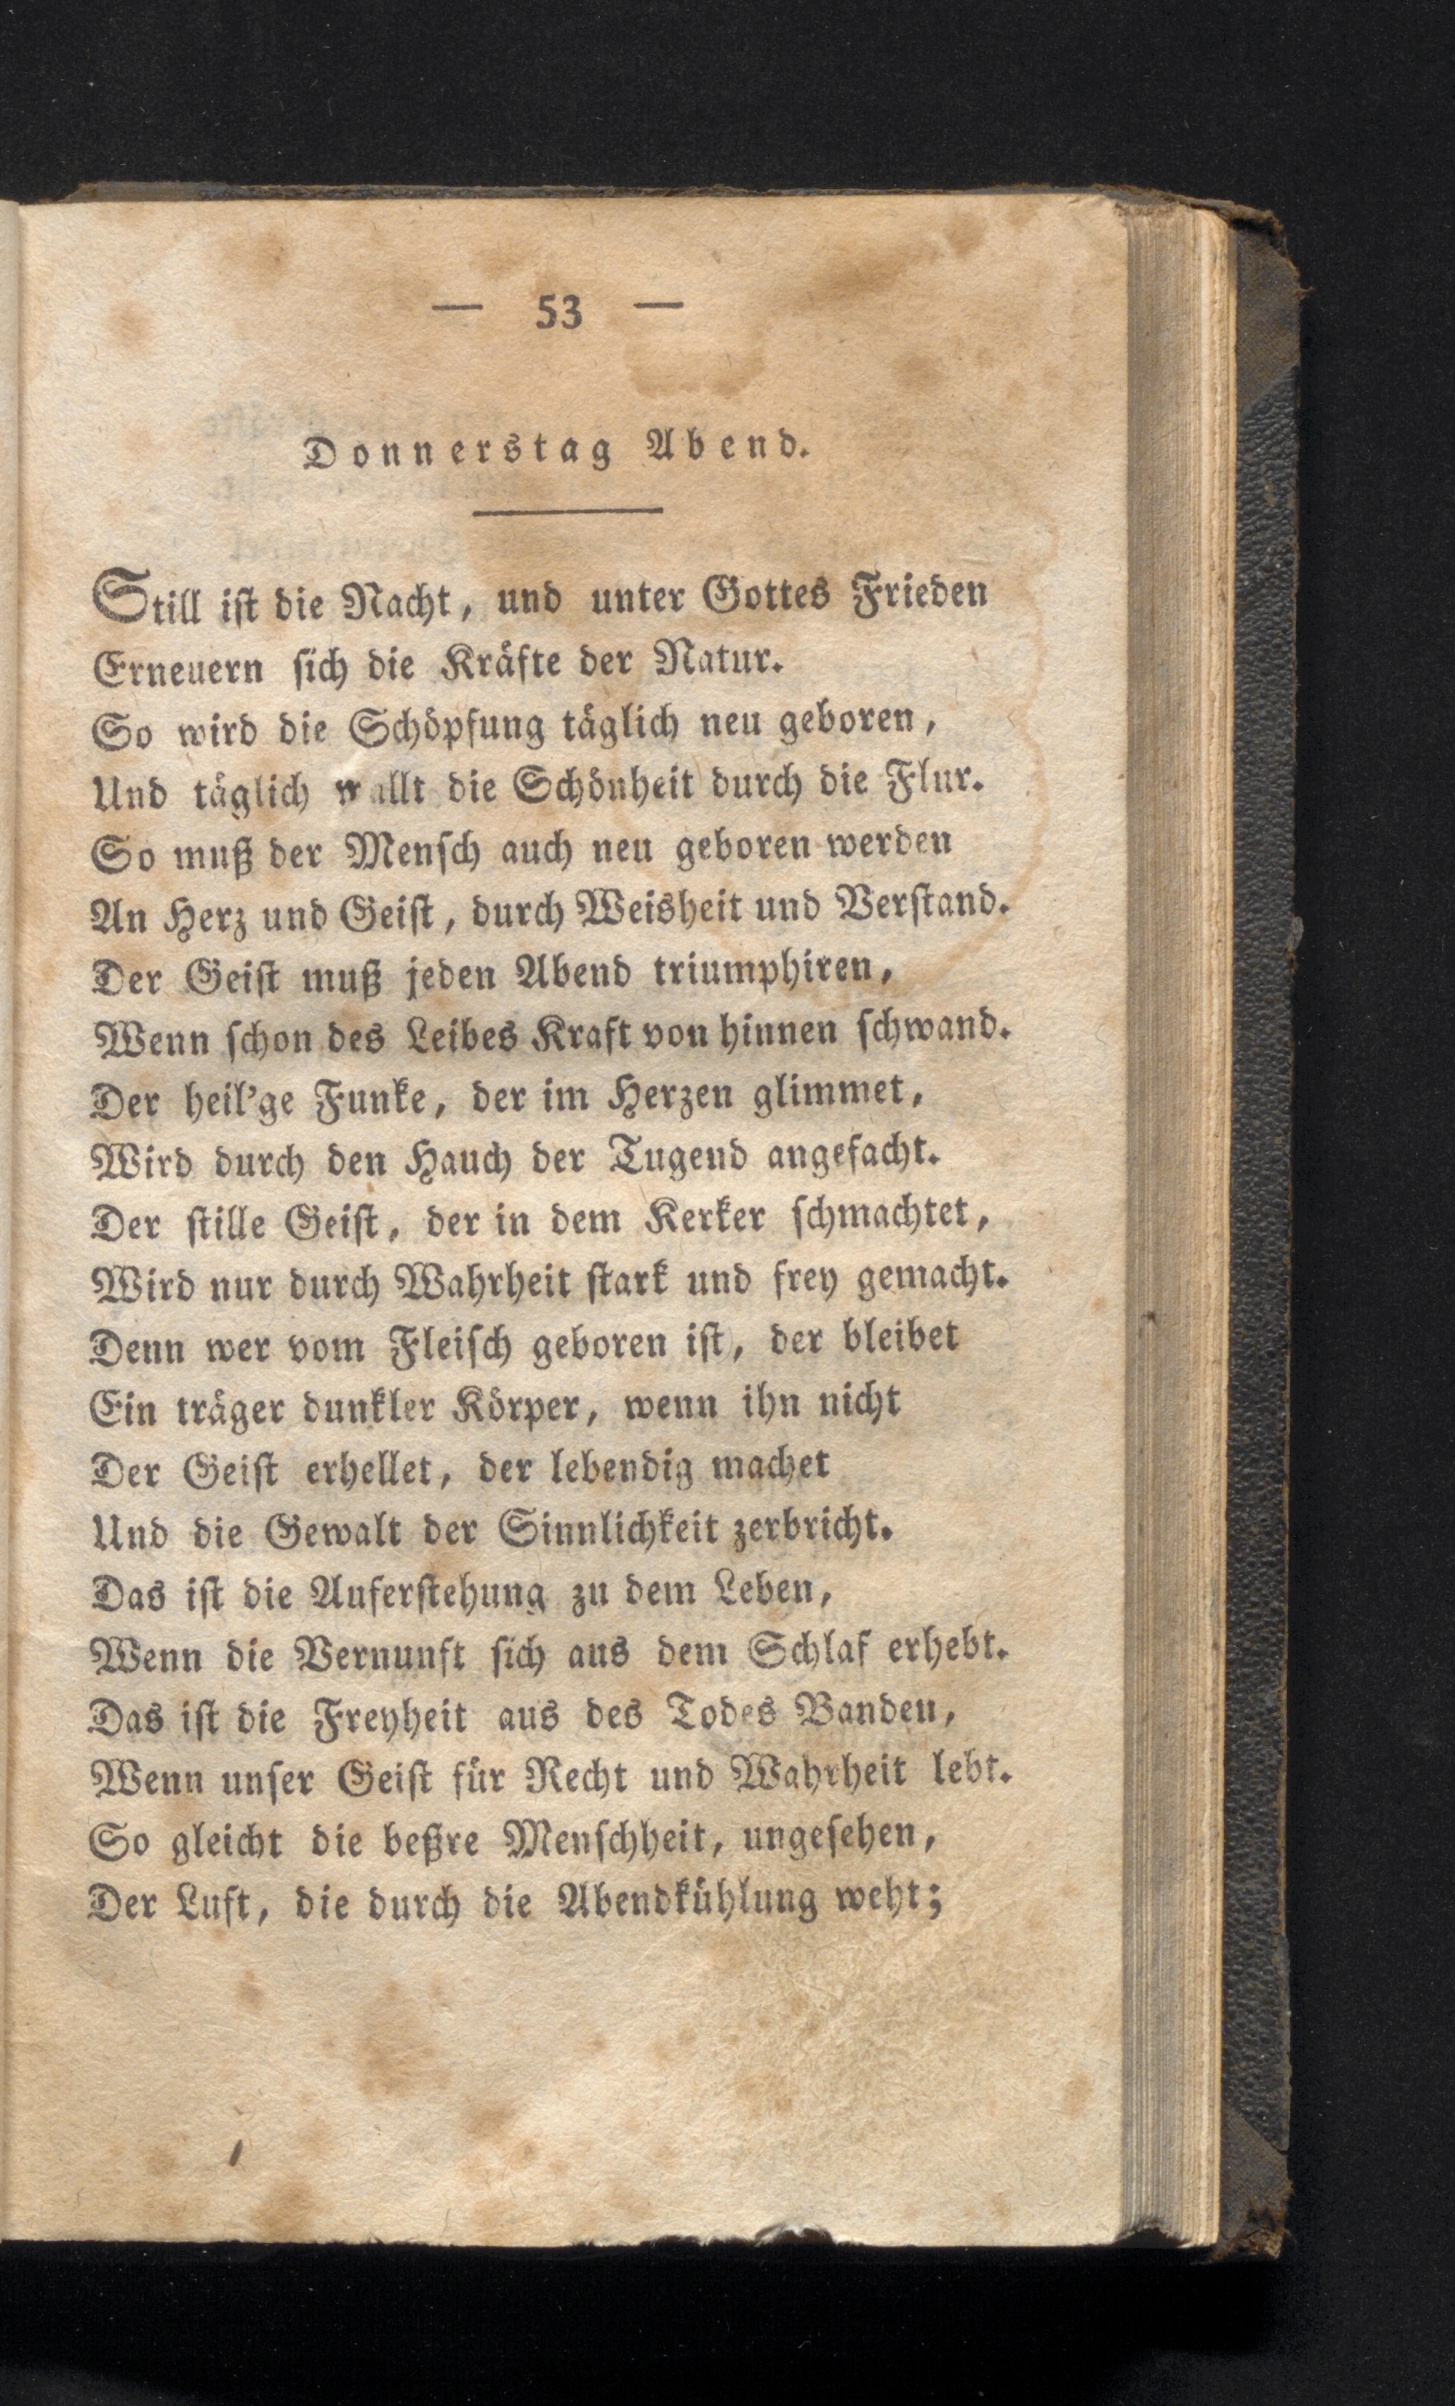 — 53 —
Donnerstag Abend.
Still ist die Nacht, und unter Gottes Frieden
Erneuern sich die Kräfte der Natur.
So wird die Schöpfung täglich neu geboren,
Und täglich wallt die Schönheit durch die Flur.
So muß der Mensch auch neu geboren werden
An Herz und Geist, durch Weisheit und Verstand.
Der Geist muß jeden Abend triumphiren,
Wenn schon des Leibes Kraft von hinnen schwand.
Der heil'ge Funke, der im Herzen glimmet,
Wird durch den Hauch der Tugend angefacht.
Der stille Geist, der in dem Kerker schmachtet,
Wird nur durch Wahrheit stark und frey gemacht.
Denn wer vom Fleisch geboren ist, der bleibet
Ein träger dunkler Körper, wenn ihn nicht
Der Geist erhellet, der lebendig machet
Und die Gewalt der Sinnlichkeit zerbricht.
Das ist die Auferstehung zu dem Leben,
Wenn die Vernunft sich aus dem Schlaf erhebt.
Das ist die Freyheit aus des Todes Banden,
Wenn unser Geist für Recht und Wahrheit lebt.
So gleicht die beßre Menschheit, ungesehen,
Der Luft, die durch die Abendkühlung weht;